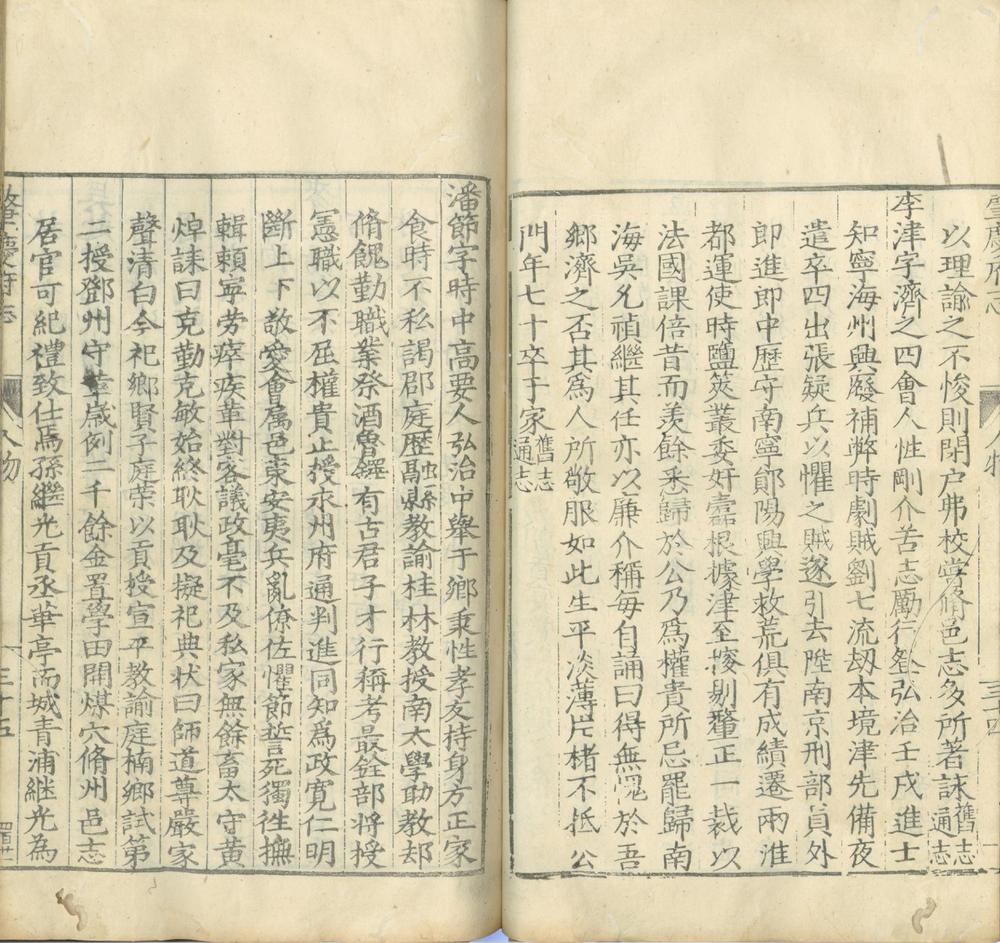 肇慶府志　人物　三十四
以理諭之不悛則閉户弗校嘗脩邑志多所著詠舊通志
李津字濟之四會人性剛介苦志勵行登弘治壬戌進士
知寧海州興廢補弊時劇賊劉七流刼本境津先備夜
遣卒四出張疑兵以懼之賊遂引去陞南京刑部員外
即進即中歷守南寧鄖陽興學救荒俱有成績遷兩淮
都運使時鹽筴叢委奸蠹根據津至搜剔釐正一裁以
法國課倍昔而羨餘悉歸於公乃爲權貴所忌罷歸南
海吳允禎繼其任亦以廉介稱每自誦曰得無愧於吾
鄉濟之否其爲人所敬服如此生平淡薄片楮不抵公
門年七十卒于家舊通志
潘節字時中高要人弘治中舉于鄉秉性孝友持身方正家
食時不私謁郡庭歷融縣教諭桂林教授南太學助教却
脩餽勤職業祭酒魯鐸有古君子才行稱考最銓部將授
憲職以不屈權貴止授永州府通判進同知爲政寬仁明
斷上下敬愛會屬邑東安夷兵亂僚佐懼節誓死獨徃撫
輯賴寧勞瘁疾革對客議政毫不及私家無餘畜太守黄
焯誄曰克勤克敏始終耿耿及擬祀典狀曰師道尊嚴家
聲清白今祀鄉賢子庭荣以貢授宣平教諭庭楠鄉試第
二授鄧州守歲例二千餘金置學田開煤穴脩州邑志
居官可紀禮致仕焉孫繼光貢丞華亭南城青浦繼光為
肇慶府志　人物　三十五